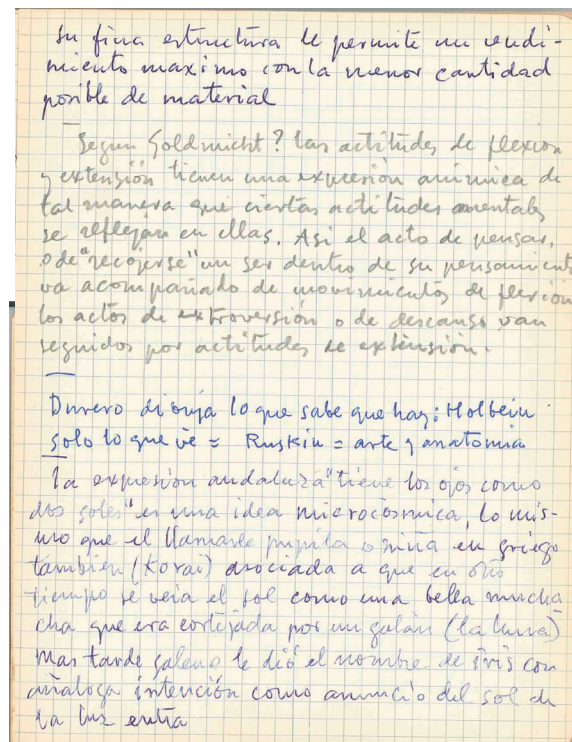 su fina estructura le permite un rendi-
miento maximo con la menor cantidad
posible de material
Segun Goldmicht? las actitudes de flexion
y extensión tienen una expresión animica de
tal manera que ciertas actitudes mentales
se reflejan en ellas. Asi el acto de pensar,
o de "recojerse" un ser dentro de su pensamiento
va acompañado de movimientos de flexión
los actos de extroversión o de descanso van
seguidos por actitudes de extensión.
Durero dibuja lo que sabe que hay: Holbein
solo lo que ve = Ruskin = arte y anatomia
La expresión andaluza "tiene los ojos como
dos soles" es una idea microcosmica, lo mis-
mo que el llamarle pupila o niña en griego
tambien (Korai) asociada a que en otro
tiempo se veia el sol como una bella mucha
cha que era cortejada por un galán (la luna)
mas tarde galeno le dió el nombre de iris con
análoga intención como anuncio del sol de
la luz entra